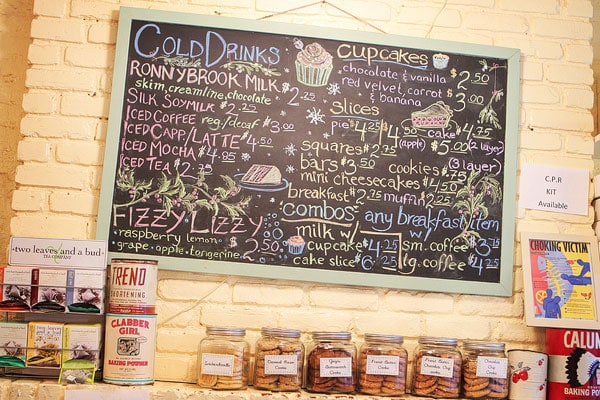 COLD DRINKS
RONNYBROOK MILK
skim, creamline, chocolate $2.25
SILK SOYMILK $2.25
ICED COFFEE reg/decaf $3.00
ICED CAPP/LATTE $4.50
ICED MOCHA $4.95
ICED TEA $2.25
FIZZY LIZZY
raspberry lemon
grape.apple.tangerine $2.50
cupcakes
chocolate & vanilla $2.50
red velvet, carrot $3.00
& banana
slices
pie $4.25 $4.75 (apple)
cake $4.50 (2 layer)
$5.00 (3 layer)
squares $2.75
bars $3.00
cookies $.75
mini cheesecakes $4.75
breakfast $2.75 muffin $2.25
combos
milk w/
cupcake $4.25
cake slice $6.25
any breakfast item
w/
sm. coffee $3.75
lg. coffee $4.25
C.P.R
KIT
Available
CHOKING VICTIM
two leaves and a bud
TEA COMPANY
TREND
SHORTENING
CLABBER
GIRL
BAKING POWDER
Snickerdoodle
Oatmeal Raisin
Cookie
Ginger
Butterscotch
Cookie
Peanut Butter
Cookie
Peanut Butter
Chocolate Chip
Cookie
Chocolate Chip
Cookie
CALUM
BAKING PO